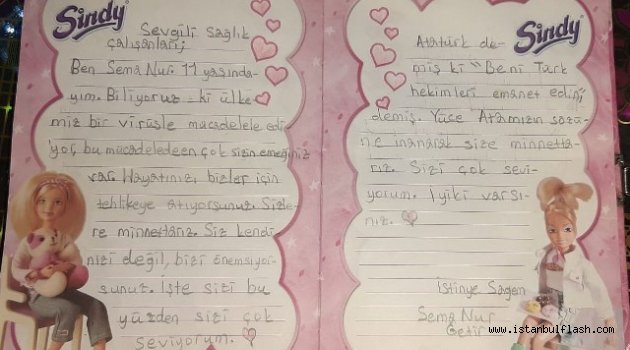 Sindy
Sevgili Sağlık
Çalışanları;
Ben Sema Nur. 11 yaşında-
yım. Biliyoruz ki ülke
miz bir virüsle mücadelele edi
yor, bu mücadeledeen çok sizin emeğiniz
var. Hayatınızı bizler için
tehlikeye atıyorsunuz. Sizle-
re minnettarız. Siz kendi
nizi değil, bizi önemsiyor-
sunuz. İşte sizi bu
yüzden sizi çok
seviyorum.
Sindy
Atatürk de-
miş ki "Beni Türk
hekimleri emanet edin"
demiş. Yüce Atamızın sözü-
ne inanarak size minnetta-
rız. Sizi çok sevi-
yorum. İyiki varsı-
nız.
İstinye
Sema Nur
www.istanbulflash.com